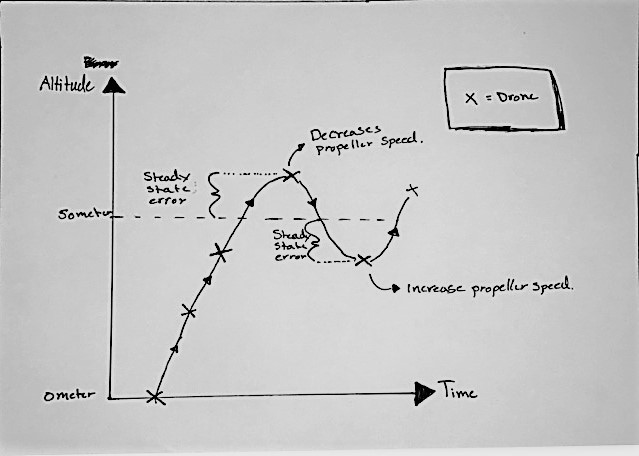 Altitude
X = Drone
Decreases
propeller Speed.
Steady
state
error
50meter
Steady
state
error
Increase propeller speed.
0meter
Time